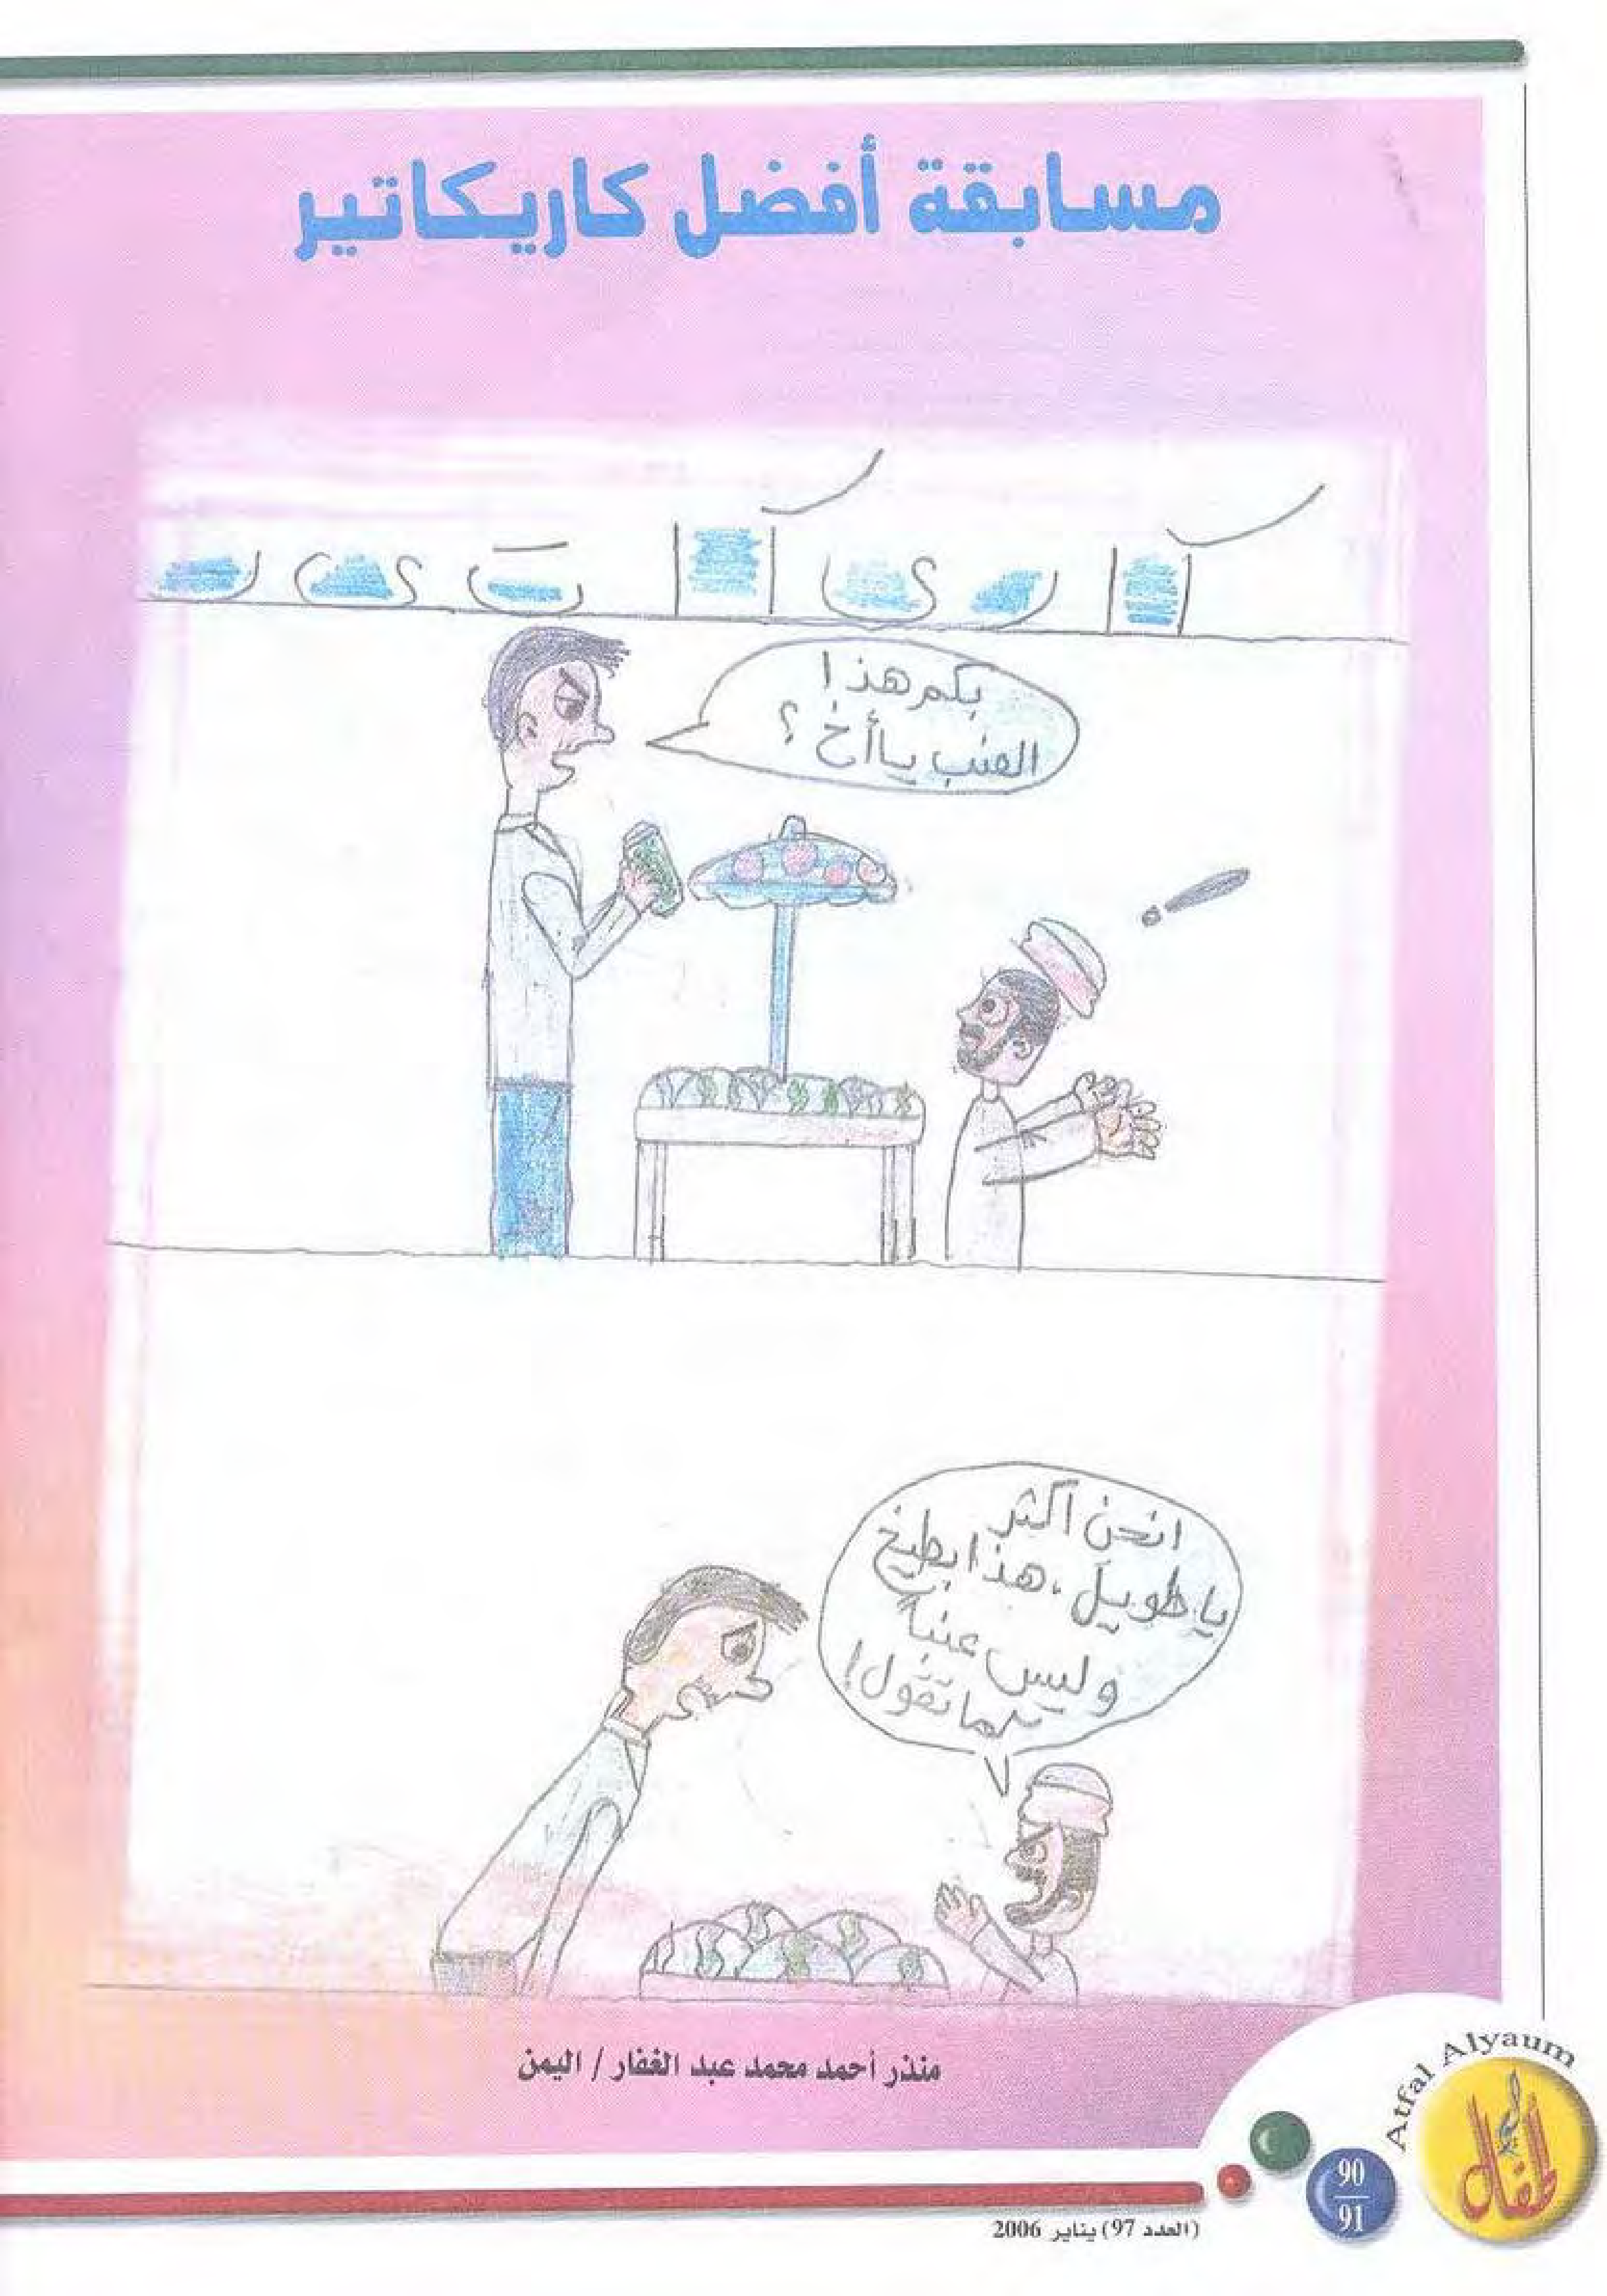 مسابقة أفضل كاريكاتير
كاريكاتير
بكم هذا
العنب يا أخ ؟
!
انحن أكثر
يا طويل، هذا بطيخ
وليس عنباً
كما تقول!
منذر أحمد محمد عبد الغفار / اليمن
Atfal Alyaum
أطفال اليوم
90
91
(العدد 97) يناير 2006